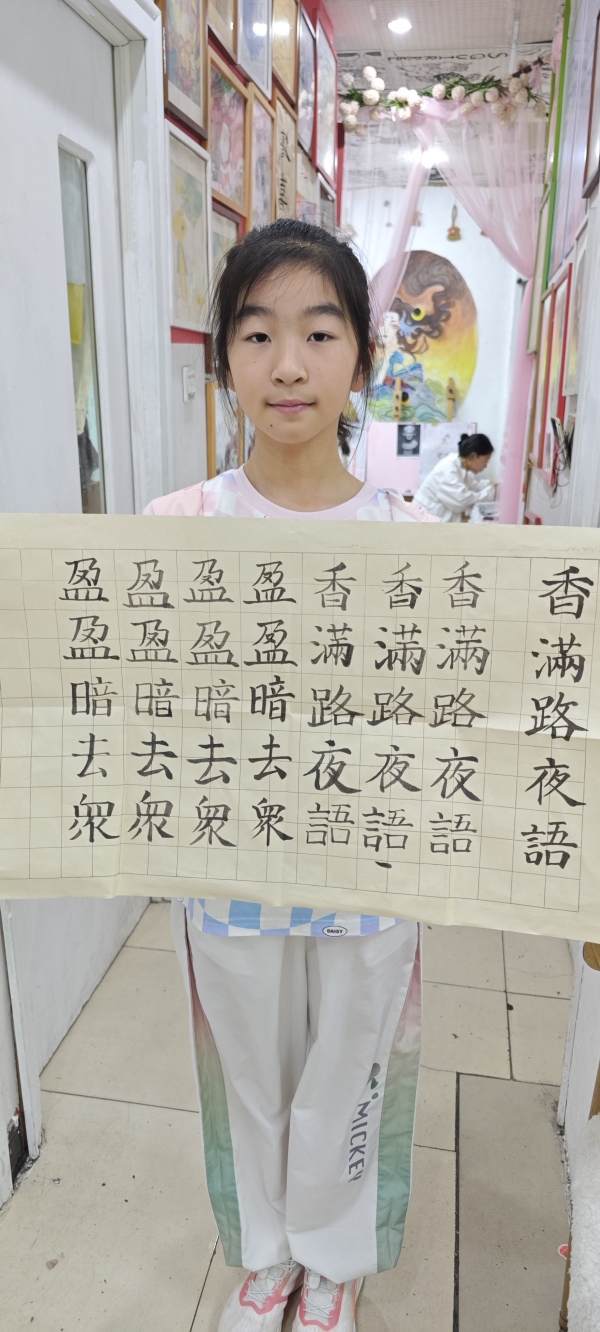 香滿路夜語
香滿路夜語
香滿路夜語
香滿路夜語
盈盈暗去衆
盈盈暗去衆
盈盈暗去衆
盈盈暗去衆
DAISY
MICKEY